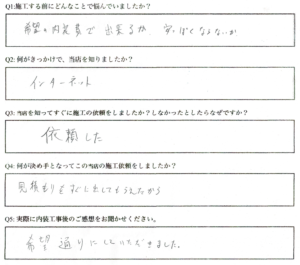 Q1:施工する前にどんなことで悩んでいましたか？
希望の内容で出来るか 安っぽくならないか
Q2: 何がきっかけで、当店を知りましたか？
インターネット
Q3: 当店を知ってすぐに施工の依頼をしましたか？しなかったとしたらなぜですか？
依頼した
Q4: 何が決め手となってこの当店の施工依頼をしましたか？
見積もりを出してもらえたから
Q5: 実際に内装工事後のご感想をお聞かせください。
希望通りにしていただきました。